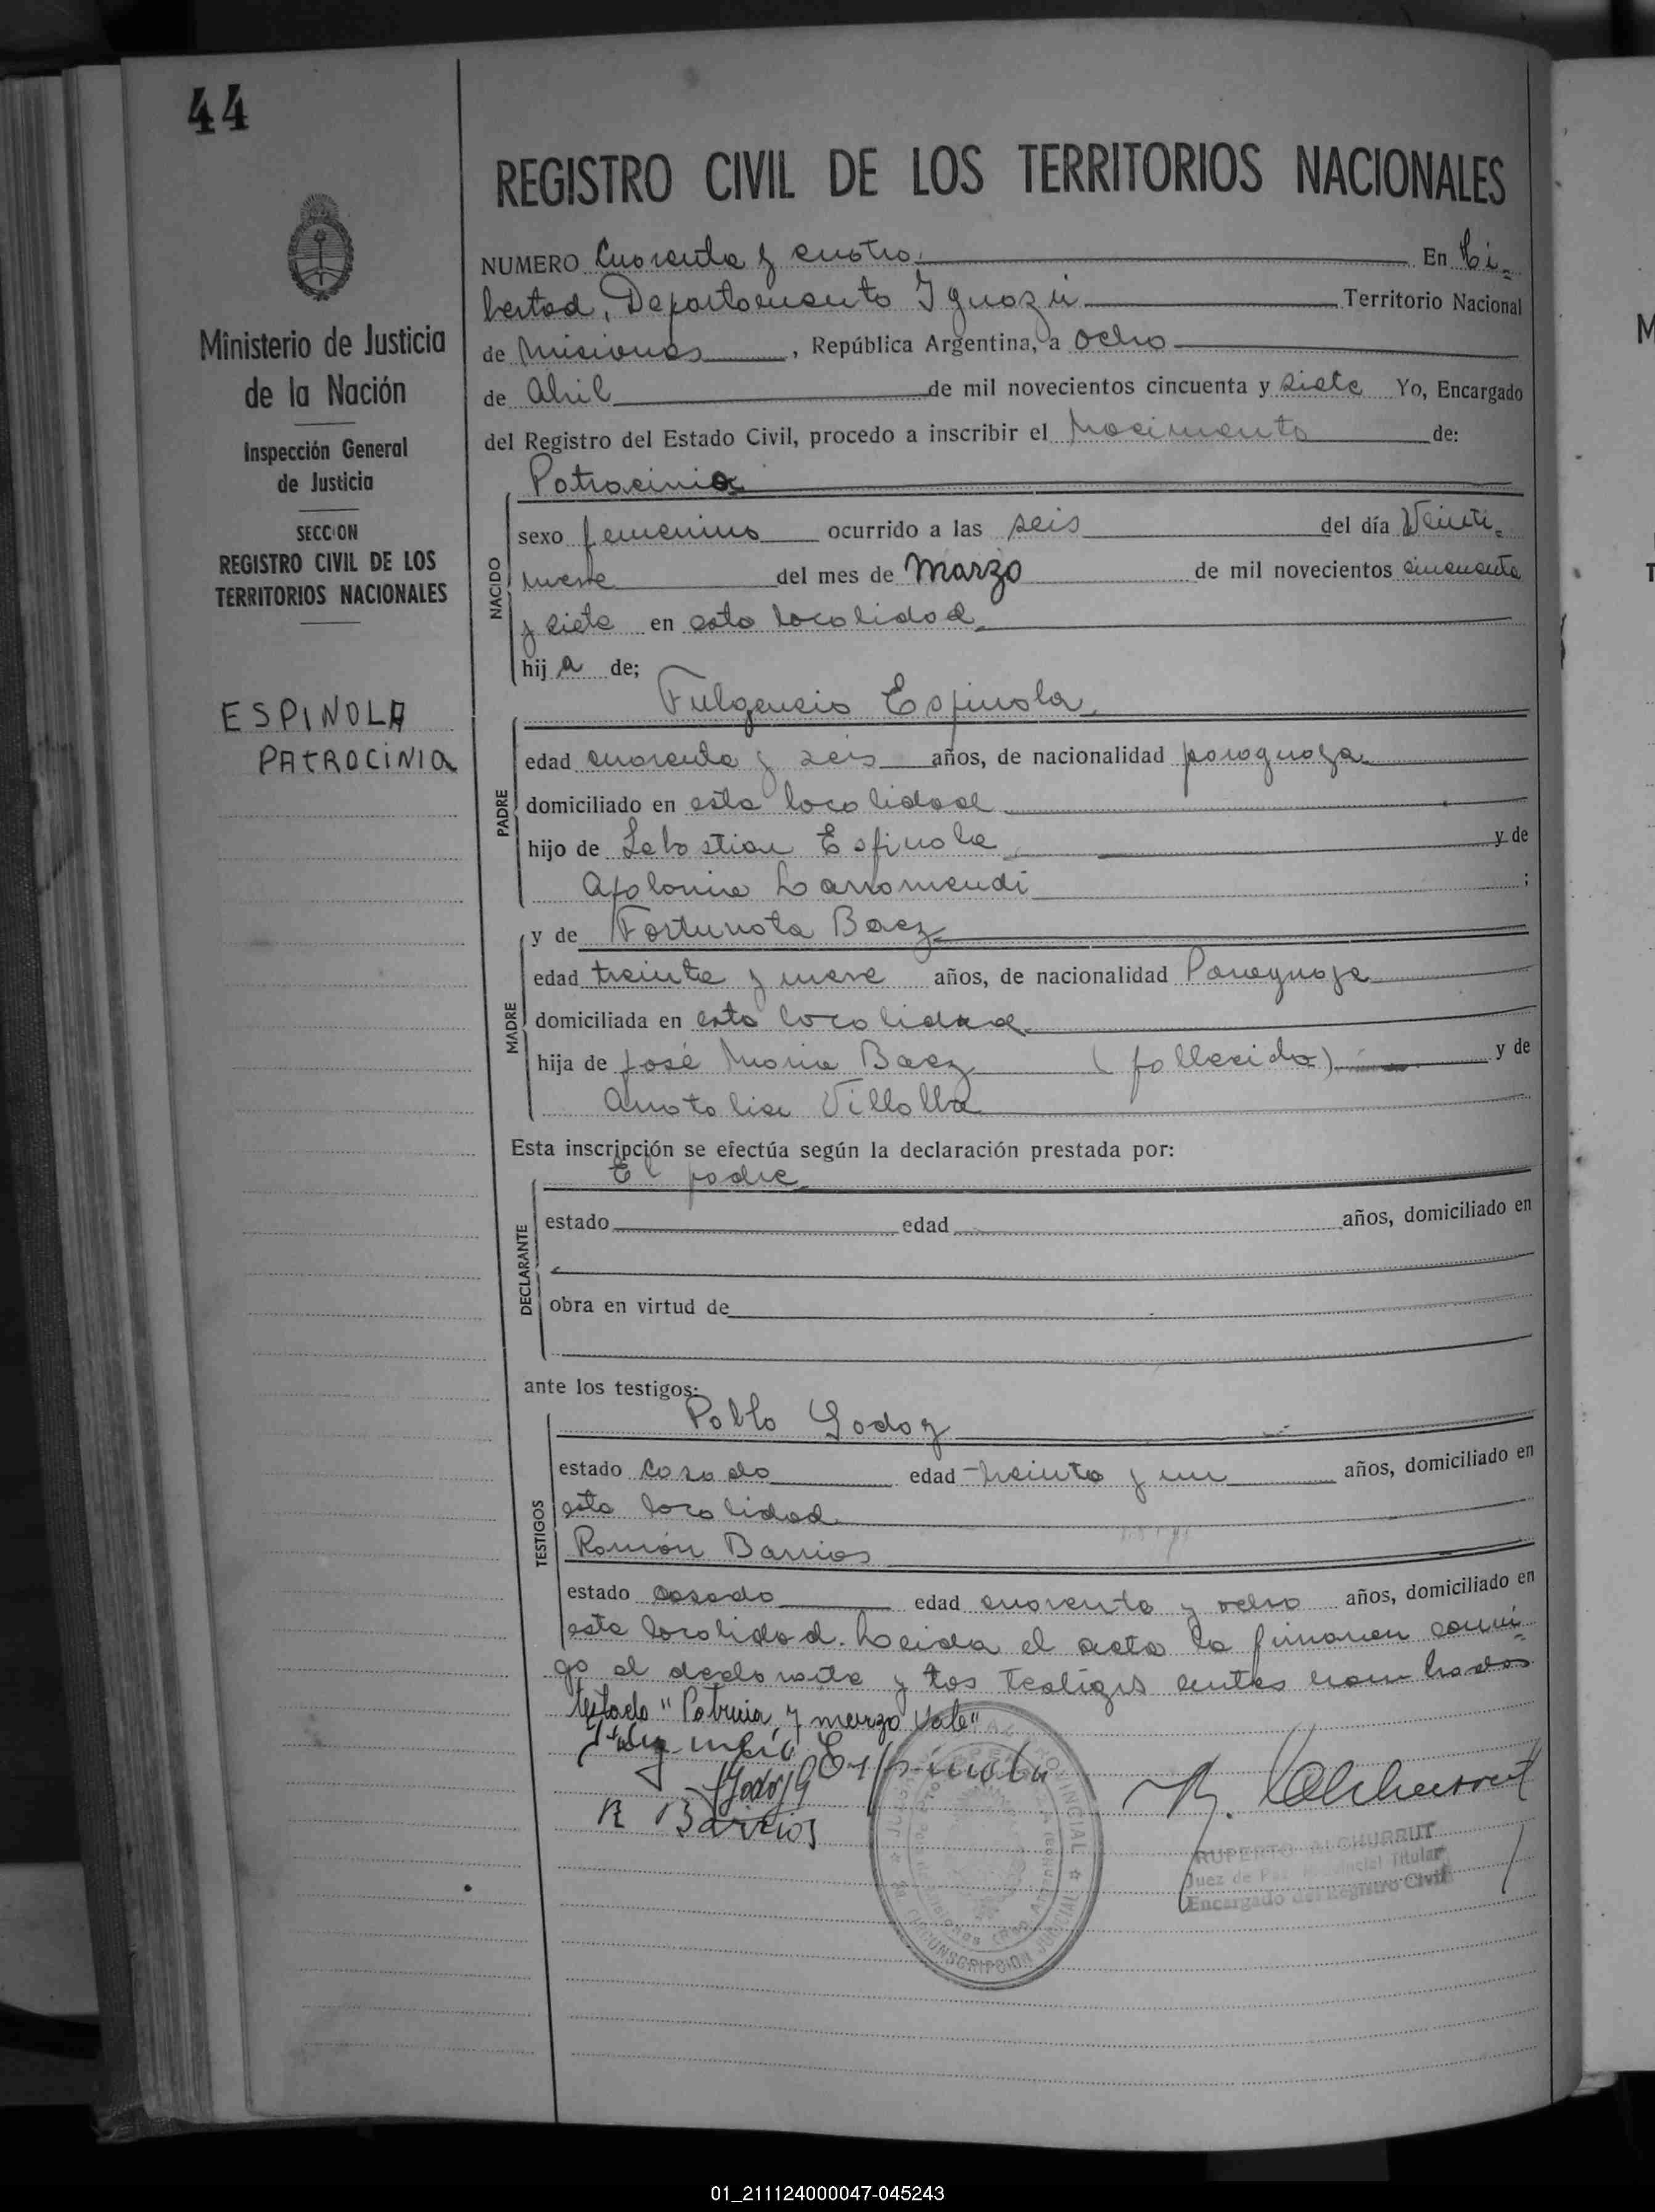 44
REGISTRO CIVIL DE LOS TERRITORIOS NACIONALES
Ministerio de Justicia
de la Nación
Inspección General
de Justicia
SECCION
REGISTRO CIVIL DE LOS
TERRITORIOS NACIONALES
ESPINOLA
PATROCINIA
NUMERO Cuarenta y cuatro. En Li-
bertad, Departamento Iguazú Territorio Nacional
de Misiones, República Argentina, a ocho
de Abril de mil novecientos cincuenta y siete Yo, Encargado
del Registro del Estado Civil, procedo a inscribir el Nacimiento de:
NACIDO
Patrocinia
sexo femenino ocurrido a las seis del día Veinti-
nueve del mes de Marzo de mil novecientos cincuenta
y siete en esta localidad
hija de;
PADRE
Fulgencio Espinola
edad cuarenta y seis años, de nacionalidad paraguaya
domiciliado en esta localidad
hijo de Sebastian Espinola y de
Apolonia Larromendi ;
MADRE
y de Fortunata Baez
edad treinta y nueve años, de nacionalidad Paraguaya
domiciliada en esta localidad
hija de José Maria Baez (fallecido) y de
Anatolia Villalba
Esta inscripción se efectúa según la declaración prestada por:
DECLARANTE
El padre
estado edad años, domiciliado en
obra en virtud de
ante los testigos:
TESTIGOS
Pablo Godoy
estado casado edad treinta y un años, domiciliado en
esta localidad
Ramón Barrios
estado casado edad cuarenta y ocho años, domiciliado en
esta localidad. Leida el acta la firmaron conmi-
go el declarante y los testigos antes nombrados
testado "Patricia y marzo Vale"
Fulgencio Espinola
Godoy
R Barrios
RUPERTO ALCHURRUT
Juez de Paz Provincial Titular
Encargado del Registro Civil
CIRCUNSCRIPCION JUDICIAL
01_211124000047-045243